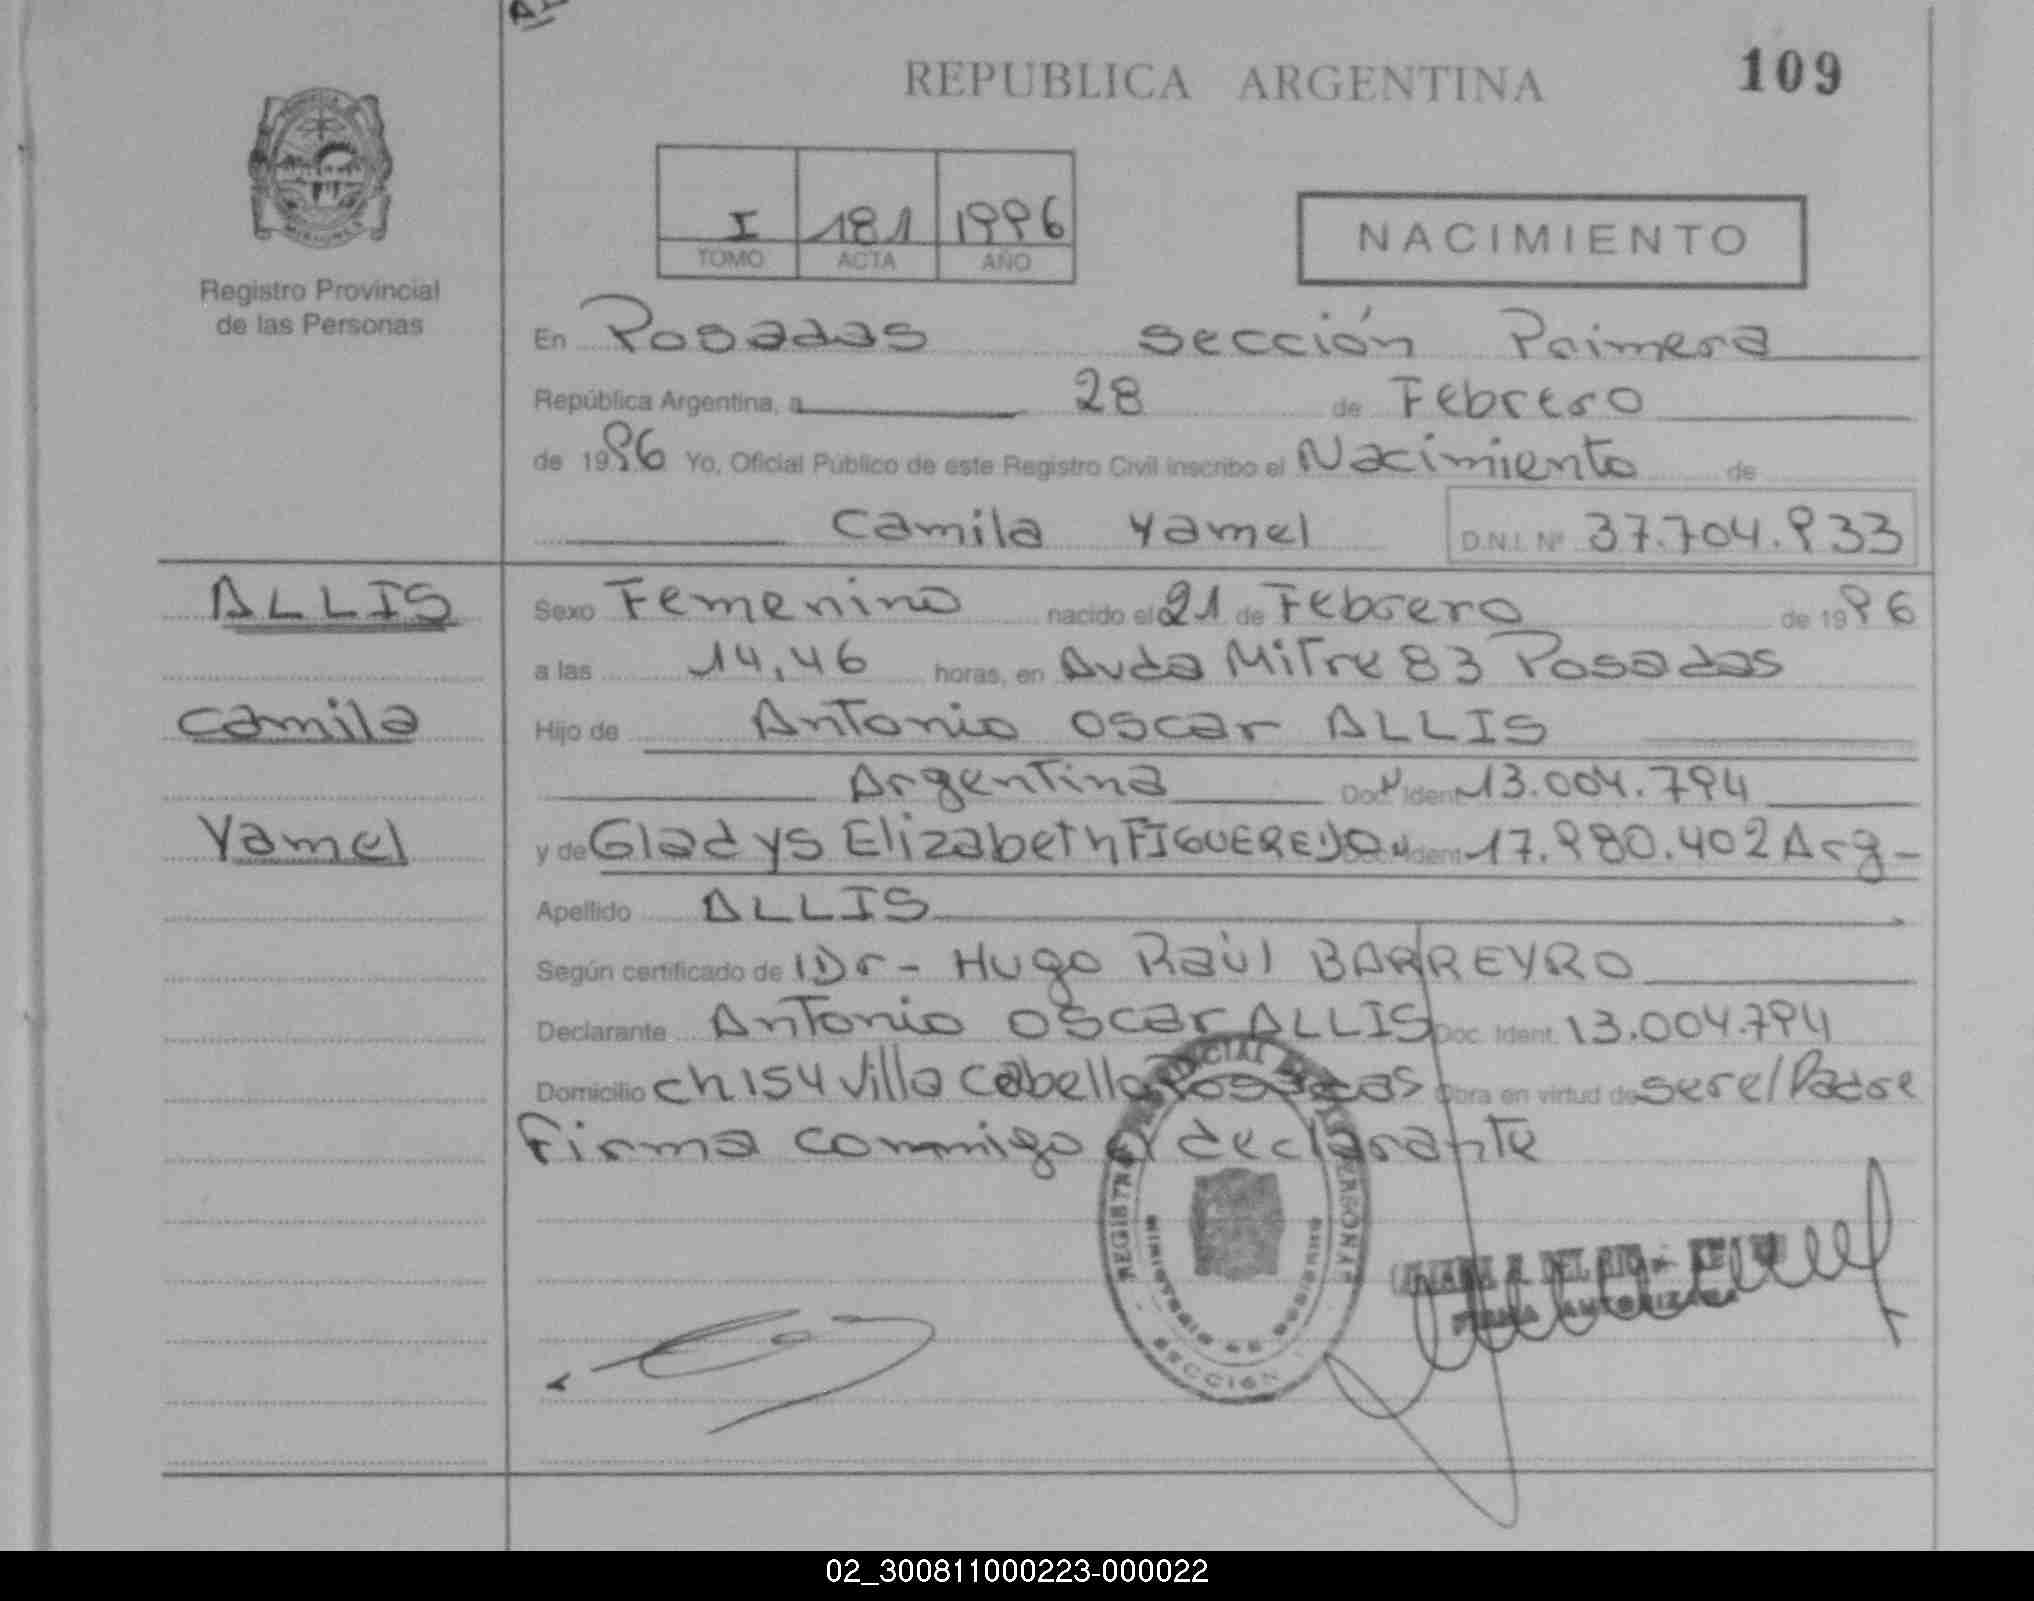 REPUBLICA ARGENTINA
109
MISIONES
Registro Provincial
de las Personas
I 181 1996
TOMO ACTA AÑO
NACIMIENTO
En Posadas sección Primera
República Argentina, a 28 de Febrero
de 1996 Yo, Oficial Público de este Registro Civil inscribo el Nacimiento de
Camila Yamel D.N.I. Nº 37.704.933
ALLIS
Camila
Yamel
Sexo Femenino nacido el 21 de Febrero de 1996
a las 14,46 horas, en Avda Mitre 83 Posadas
Hijo de Antonio Oscar ALLIS
Argentina Doc. Ident. 13.004.794
y de Gladys Elizabeth FIGUEREDO Doc. Ident. 17.980.402 Arg-
Apellido ALLIS
Según certificado de Dr- Hugo Raúl BARREYRO
Declarante Antonio Oscar ALLIS Doc. Ident. 13.004.794
Domicilio Ch 154 Villa Cabello Posadas Obra en virtud de ser el Padre
Firma conmigo el declarante
MINISTERIO DE GOBIERNO
SECCION
FIRMA AUTORIZADA
02_300811000223-000022